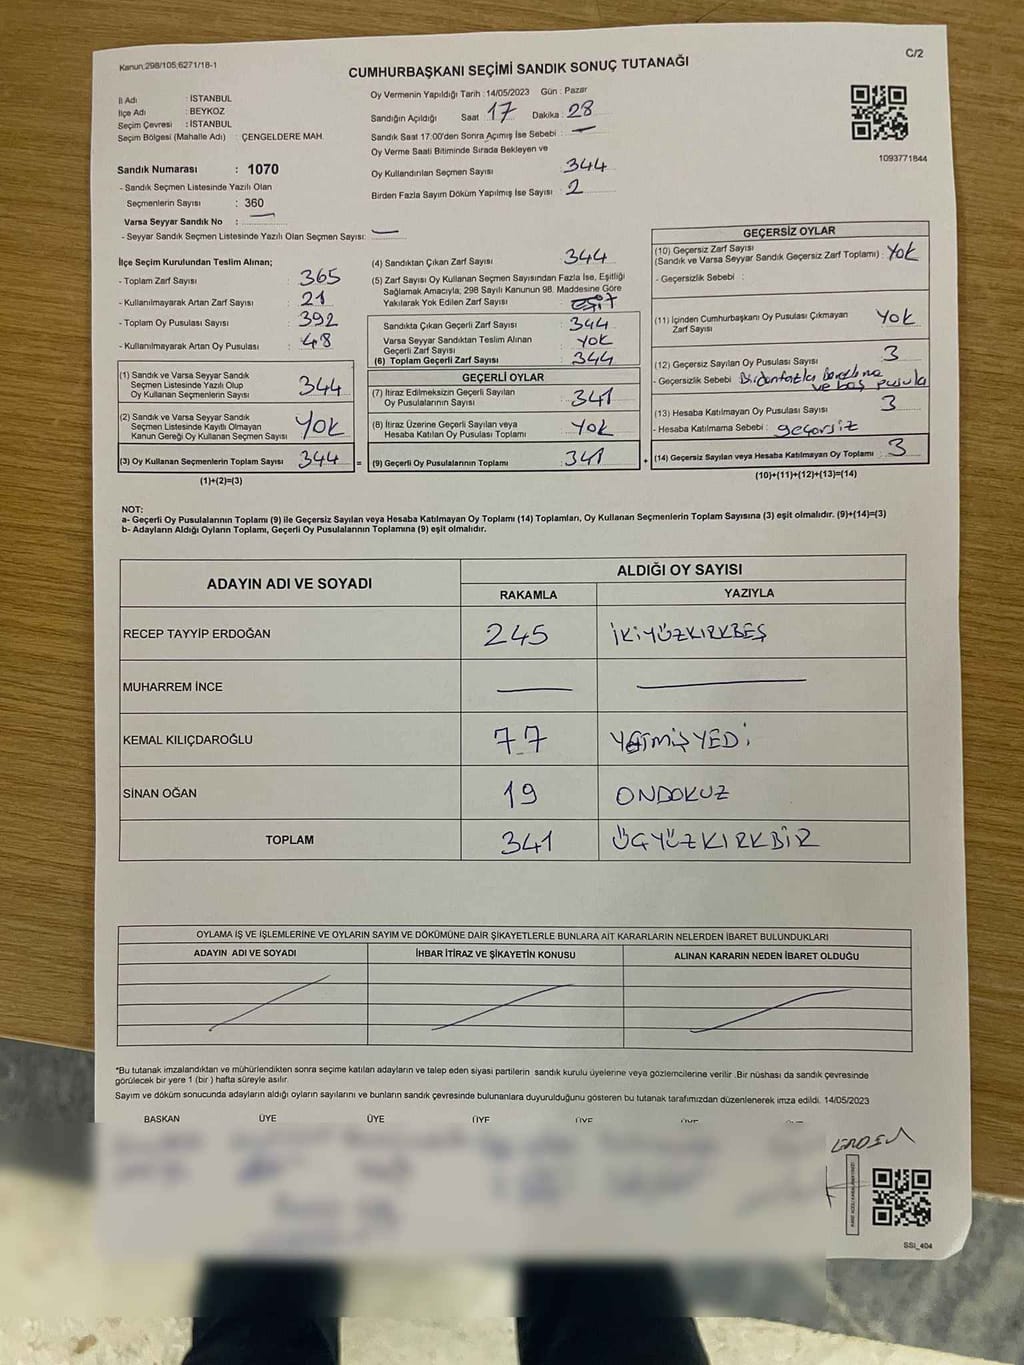 Kanun:298/105;6271/18-1
C/2
CUMHURBAŞKANI SEÇİMİ SANDIK SONUÇ TUTANAĞI
İl Adı : İSTANBUL
İlçe Adı : BEYKOZ
Seçim Çevresi : İSTANBUL
Seçim Bölgesi (Mahalle Adı) : ÇENGELDERE MAH.
Sandık Numarası : 1070
- Sandık Seçmen Listesinde Yazılı Olan
Seçmenlerin Sayısı : 360
Varsa Seyyar Sandık No : —
- Seyyar Sandık Seçmen Listesinde Yazılı Olan Seçmen Sayısı: —
Oy Vermenin Yapıldığı Tarih : 14/05/2023 Gün : Pazar
Sandığın Açıldığı Saat 17 Dakika : 28
Sandık Saat 17:00'den Sonra Açımış İse Sebebi : —
Oy Verme Saati Bitiminde Sırada Bekleyen ve
Oy Kullandırılan Seçmen Sayısı : 344
Birden Fazla Sayım Döküm Yapılmış İse Sayısı : 2
1093771844
İlçe Seçim Kurulundan Teslim Alınan;
- Toplam Zarf Sayısı : 365
- Kullanılmayarak Artan Zarf Sayısı : 21
- Toplam Oy Pusulası Sayısı : 392
- Kullanılmayarak Artan Oy Pusulası : 48
(1) Sandık ve Varsa Seyyar Sandık
Seçmen Listesinde Yazılı Olup
Oy Kullanan Seçmenlerin Sayısı : 344
(2) Sandık ve Varsa Seyyar Sandık
Seçmen Listesinde Kayıtlı Olmayan
Kanun Gereği Oy Kullanan Seçmen Sayısı : YOK
(3) Oy Kullanan Seçmenlerin Toplam Sayısı : 344 =
(1)+(2)=(3)
(4) Sandıktan Çıkan Zarf Sayısı : 344
(5) Zarf Sayısı Oy Kullanan Seçmen Sayısından Fazla İse, Eşitliği
Sağlamak Amacıyla; 298 Sayılı Kanunun 98. Maddesine Göre
Yakılarak Yok Edilen Zarf Sayısı : eşit
Sandıkta Çıkan Geçerli Zarf Sayısı : 344
Varsa Seyyar Sandıktan Teslim Alınan
Geçerli Zarf Sayısı : YOK
(6) Toplam Geçerli Zarf Sayısı : 344
GEÇERLİ OYLAR
(7) İtiraz Edilmeksizin Geçerli Sayılan
Oy Pusulalarının Sayısı : 341
(8) İtiraz Üzerine Geçerli Sayılan veya
Hesaba Katılan Oy Pusulası Toplamı : YOK
(9) Geçerli Oy Pusulalarının Toplamı : 341 +
GEÇERSİZ OYLAR
(10) Geçersiz Zarf Sayısı
(Sandık ve Varsa Seyyar Sandık Geçersiz Zarf Toplamı) : Yok
- Geçersizlik Sebebi :
(11) İçinden Cumhurbaşkanı Oy Pusulası Çıkmayan
Zarf Sayısı : Yok
(12) Geçersiz Sayılan Oy Pusulası Sayısı : 3
- Geçersizlik Sebebi : Birdenfazla
ve boş pusula
(13) Hesaba Katılmayan Oy Pusulası Sayısı : 3
- Hesaba Katılmama Sebebi : geçersiz
(14) Geçersiz Sayılan veya Hesaba Katılmayan Oy Toplamı : 3
(10)+(11)+(12)+(13)=(14)
NOT:
a- Geçerli Oy Pusulalarının Toplamı (9) ile Geçersiz Sayılan veya Hesaba Katılmayan Oy Toplamı (14) Toplamları, Oy Kullanan Seçmenlerin Toplam Sayısına (3) eşit olmalıdır. (9)+(14)=(3)
b- Adayların Aldığı Oyların Toplamı, Geçerli Oy Pusulalarının Toplamına (9) eşit olmalıdır.
ADAYIN ADI VE SOYADI
ALDIĞI OY SAYISI
RAKAMLA YAZIYLA
RECEP TAYYİP ERDOĞAN 245 İKİYÜZKIRKBEŞ
MUHARREM İNCE — —
KEMAL KILIÇDAROĞLU 77 YETMİŞYEDİ
SİNAN OĞAN 19 ONDOKUZ
TOPLAM 341 ÜÇYÜZKIRKBİR
OYLAMA İŞ VE İŞLEMLERİNE VE OYLARIN SAYIM VE DÖKÜMÜNE DAİR ŞİKAYETLERLE BUNLARA AİT KARARLARIN NELERDEN İBARET BULUNDUKLARI
ADAYIN ADI VE SOYADI İHBAR İTİRAZ VE ŞİKAYETİN KONUSU ALINAN KARARIN NEDEN İBARET OLDUĞU
*Bu tutanak imzalandıktan ve mühürlendikten sonra seçime katılan adayların ve talep eden siyasi partilerin sandık kurulu üyelerine veya gözlemcilerine verilir .Bir nüshası da sandık çevresinde
görülecek bir yere 1 (bir ) hafta süreyle asılır.
Sayım ve döküm sonucunda adayların aldığı oyların sayılarını ve bunların sandık çevresinde bulunanlara duyurulduğunu gösteren bu tutanak tarafımızdan düzenlenerek imza edildi. 14/05/2023
BAŞKAN ÜYE ÜYE ÜYE ÜYE ÜYE
SSI_404